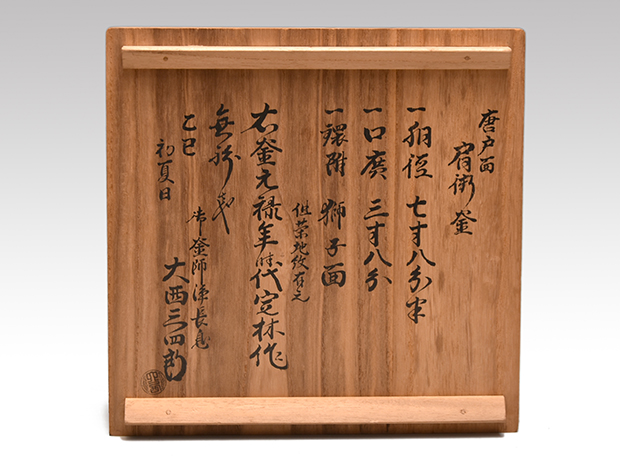 唐戸面
肩衝釜
一 胴径 七寸八分半
一 口廣 三寸八分
一 鐶附 獅子面
但菜地紋有之
右釜元禄年時代定林作
無紛
乙巳
初夏日
御釜師浄長息
大西三四郎